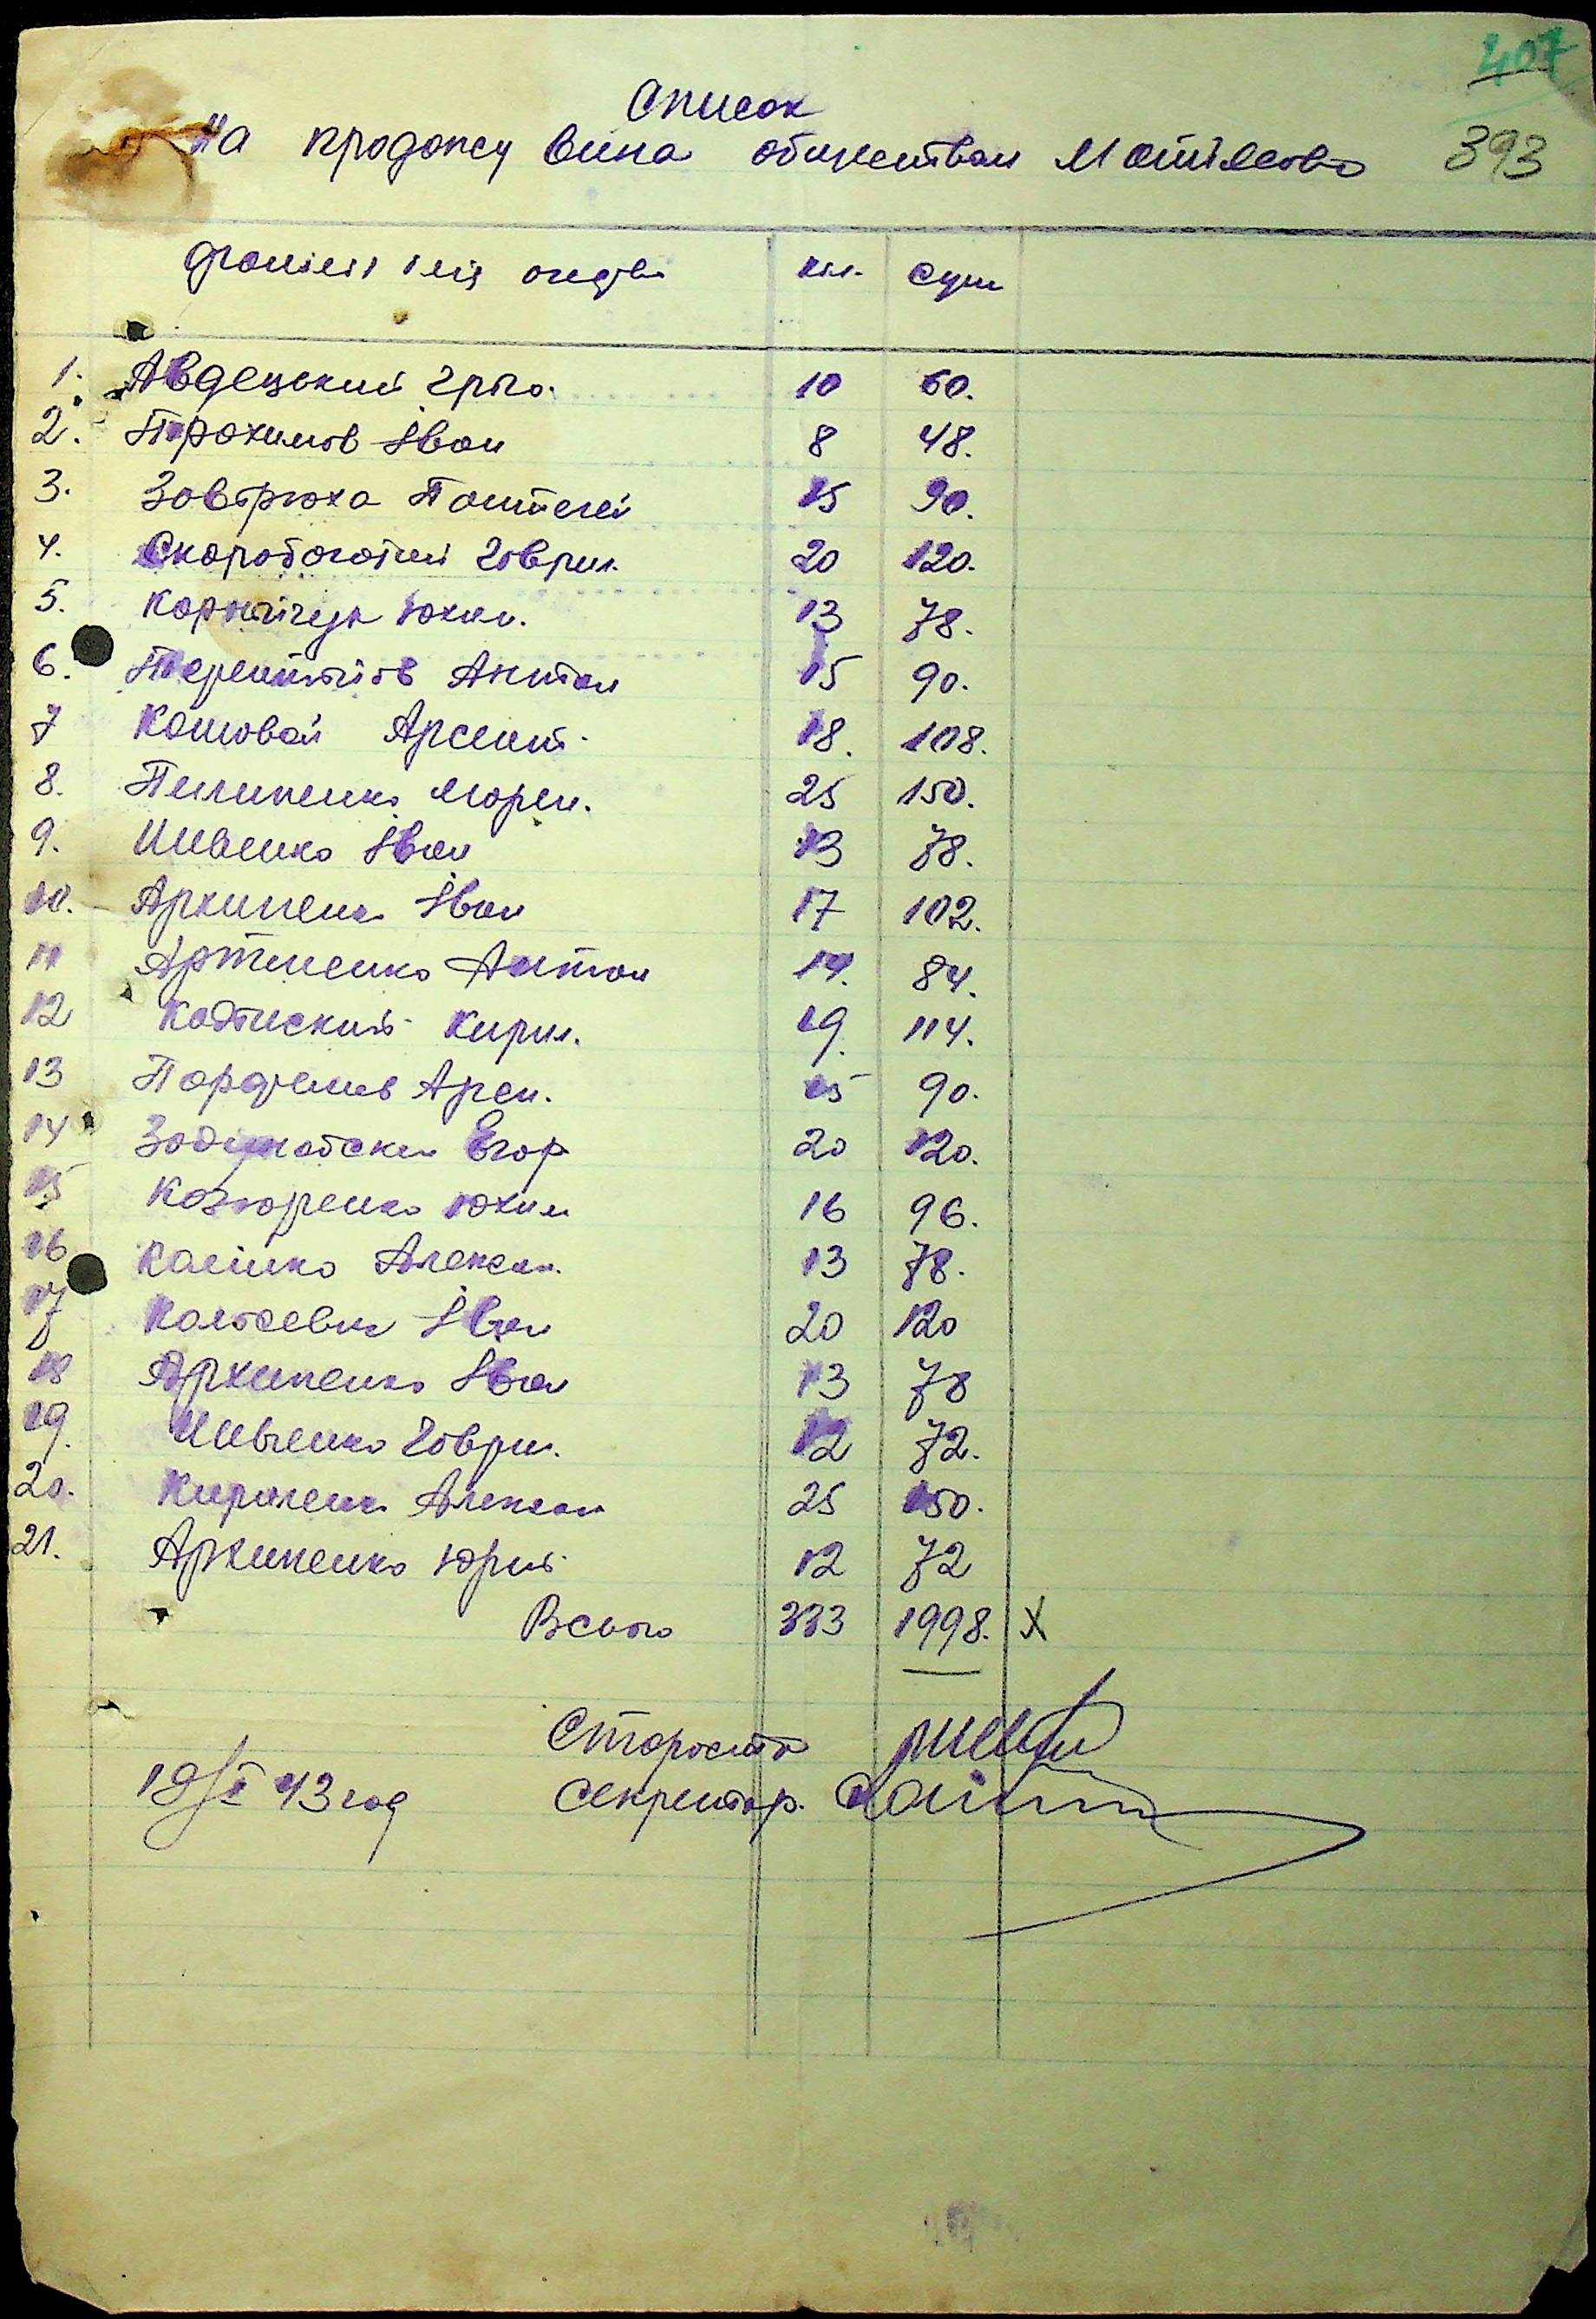 407
Список
На продажу вина обществом Матіясово 393
фамілі і мя кіл. сум
1. Авдецький Григо. 10 60.
2. Прохимов Іван 8 48.
3. Завтрюха Пантелей 15 90.
4. Скоробогатий Говрил. 20 120.
5. Корнійчук Юхим. 13 78.
6. Терентьїв Антон 15 90.
7 Кошовой Арсент. 18. 108.
8. Пилипенко Марек. 25 150.
9. Шевенко Іван 13 78.
10. Архипенк Іван 17 102.
11 Артименко Антон 14. 84.
12 Кирил. 19. 114.
13 Парфенив Арсен. 15 90.
14 Егор 20 120.
15 Юхим 16 96.
16 Калінко Алексан. 13 78.
17 Іван 20 120
18 Архипенко Іван 13 78
19. Шевченко Говрил. 12 72.
20. Кириленк Алексан 25 150.
21. Архипенко Юрий 12 72
Всього 333 1998. X
Староста
18/X 43 год Секретар.